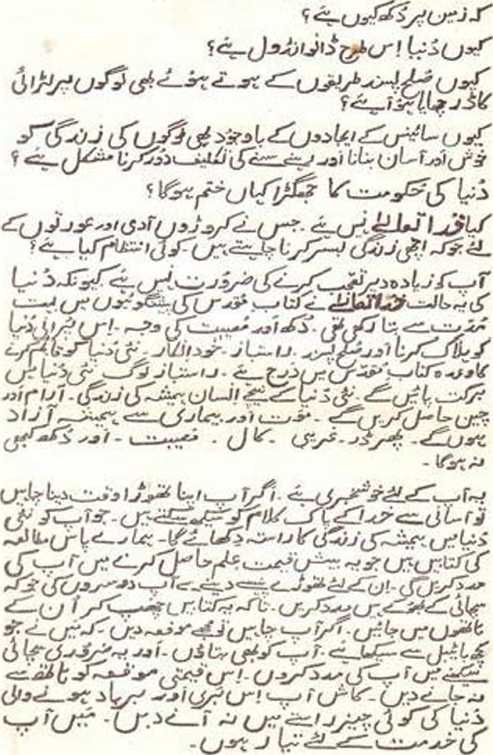 کہ زمین پر دُکھ کیوں ہے؟
کیوں دُنیا اِس طرح ڈانوانڈول ہے؟
کیوں صلح پسند طریقوں کے ہوتے ہوئے بھی لوگوں پر لڑائی
کا ڈر چھایا ہوا ہے؟
کیوں سائینس کے ایجادوں کے باوجود بھی لوگوں کی زندگی کو
خوش اور آسان بنانا اور رہنے سہنے کی تکلیف دُور کرنا مشکل ہے؟
دُنیا کی حکومت کا جھگڑا کہاں ختم ہوگا؟
کیا خُدا تعالےٰ نہیں ہے۔ جس نے کروڑوں آدمی اور عورتوں کے
لئے جو کہ اچھی زندگی بسر کرنا چاہتے ہیں۔ کوئی انتظام کیا ہے؟
آپ کو زیادہ دیر تعجب کرنے کی ضرورت نہیں ہے کیونکہ دُنیا
کی یہ حالت خُدا تعالےٰ نے کتاب مقدس کی پیشنگوئیوں میں بہت
مُدت سے بتا رکھی تھی۔ دُکھ اور مُصیبت کی وجہ۔ اِس بُرائی دُنیا
کو ہلاک کرنا اور صُلح پسند۔ راستباز۔ خود انکار۔ نئی دُنیا کو قائم کرنے
کا وعدہ کتاب مُقدس میں درج ہے۔ راستباز لوگ نئی دُنیا میں
برکت پائیں گے۔ نئی دُنیا کے نیچے انسان ہمیشہ کی زندگی۔ آرام اور
چین حاصل کریں گے۔ موت اور بیماری سے ہمیشہ آزاد
ہوں گے۔ پھر ڈر۔ غریبی۔ کال۔ مُصیبت۔ اور دُکھ کبھی
نہ ہوگا۔
یہ آپ کے لئے خوشخبری ہے۔ اگر آپ اپنا تھوڑا وقت دینا چاہیں
تو آسانی سے خدا کے پاک کلام کو سیکھ سکتے ہیں۔ جو آپ کو نئی
دُنیا میں ہمیشہ کی زندگی کا راستہ دکھائے گا۔ ہمارے پاس مطالعہ
کی کتابیں ہیں جو یہ بیش قیمت علم حاصل کرنے میں آپ کی
مدد کریں گی۔ اِن کے لئے تھوڑے پیسے دینے سے آپ دوسروں کی جو کہ
سچائی کے بھوکے ہیں مدد کریں۔ تاکہ یہ کتابیں چھپ کر اُن کے
ہاتھوں میں جائیں۔ اگر آپ چاہیں تو مجھے موقعہ دیں۔ کہ میں نے جو
کچھ بائیبل سے سیکھا ہے۔ آپ کو بھی بتاؤں۔ اور یہ ضروری سچائی
سیکھنے میں آپ کی مدد کروں۔ اِس قیمتی موقعہ کو ہاتھ سے
نہ جانے دیں۔ کاش آپ اِس بُری اور برباد ہونے والی
دُنیا کی کوئی چیز راستے میں نہ آنے دیں۔ مَیں آپ
کی خدمت کے لئے تیار ہوں۔